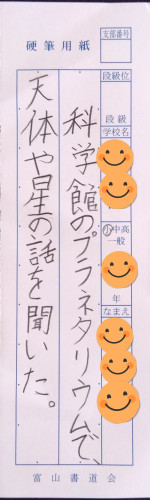 硬筆用紙
支部番号
段級位
段級
学校名
小中高
一般
年
なまえ
科学館のプラネタリウムで、
天体や星の話を聞いた。
富山書道会